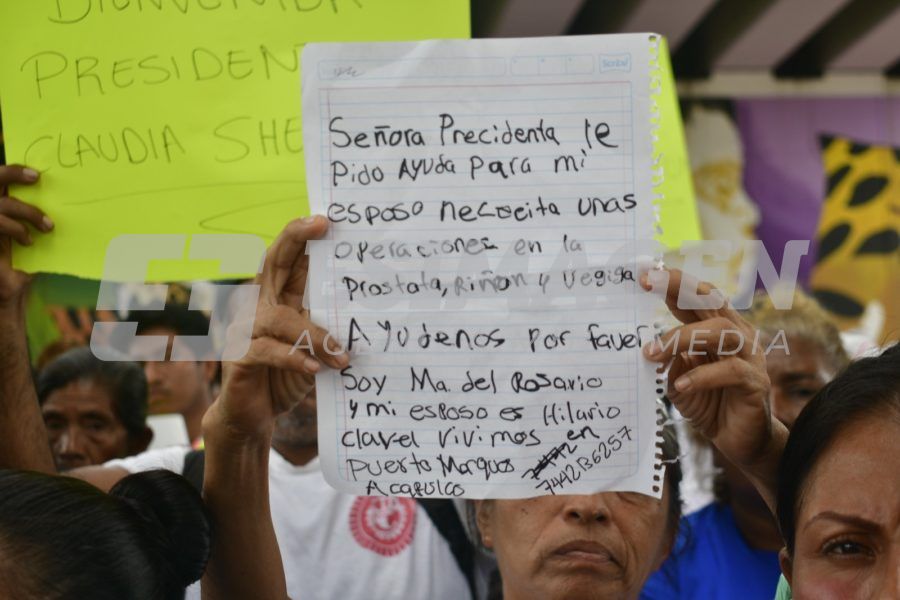 BIENVENIDA
PRESIDEN
CLAUDIA SHE
Scribe
Señora Precidenta le
Pido Ayuda para mi
esposo necocita unas
operaciones en la
Prostata, Riñon y vegiga
Ayudenos por favor
Soy Ma. del Rosario
y mi esposo es Hilario
clavel vivimos en
puerto Marques
Acapulco
7442B6257
IMAGEN
MEDIA